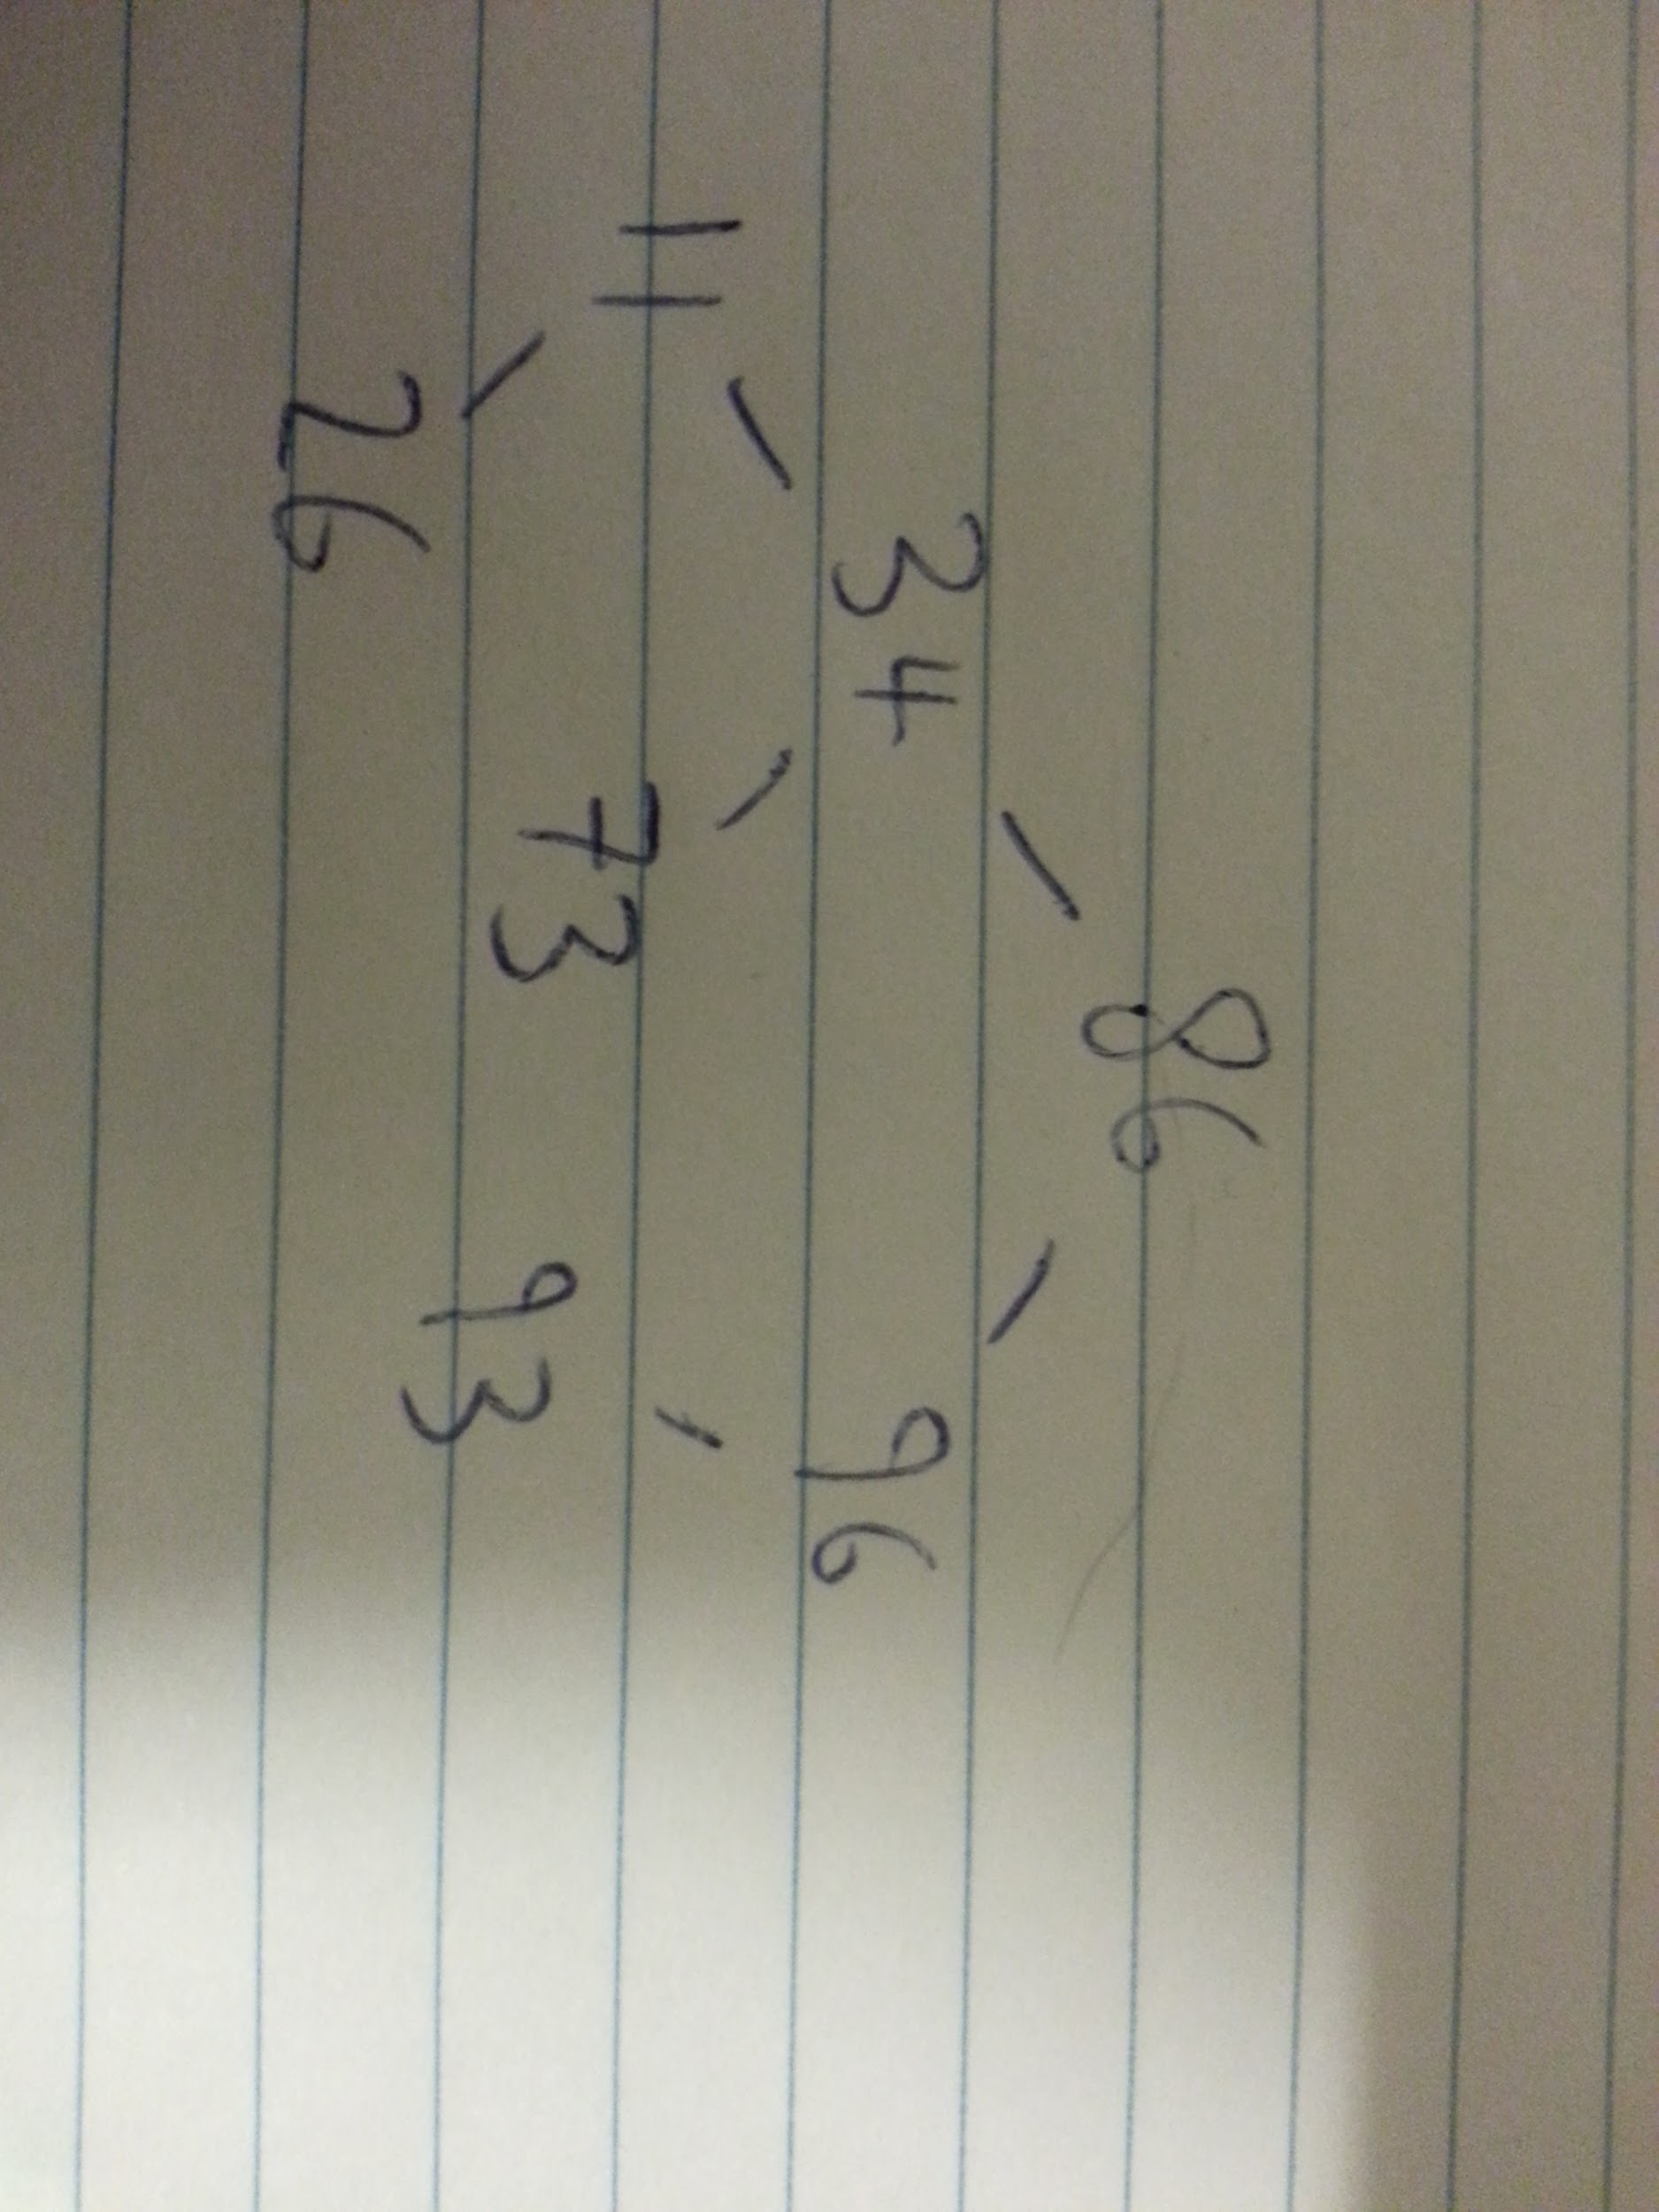 86
34 96
11 73 93
26